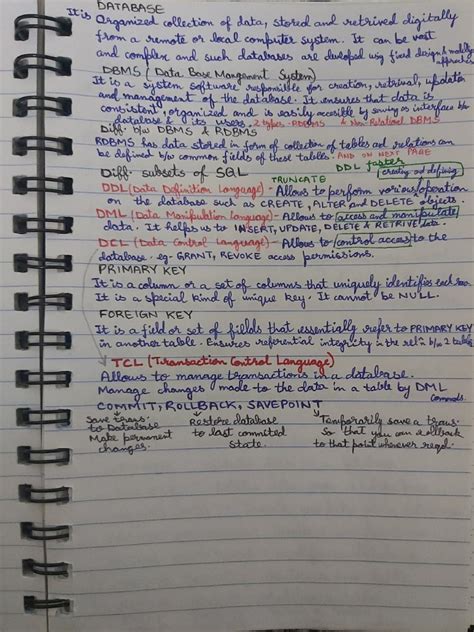 DATABASE
It is Organized collection of data, stored and retrived digitally
from a remote or local computer system. It can be vast
and complex and such databases are developed using fixed design & modelling
approaches
DBMS (Data Base Management System)
It is a system software responsible for creation, retrival, updation
and management of the database. It ensures that data is
consistent, organized and is easily accesible by serving as interface b/w
database & its users. 2 types - RDBMS & Non-Relational DBMS
Diff. b/w DBMS & RDBMS
RDBMS has data stored in form of collection of tables and relations can
be defined b/w common fields of these tables. AND ON NEXT PAGE
DDL faster
Diff. subsets of SQL TRUNCATE creating and defining
DDL (Data Definition Language) - Allows to perform various operation
on the database such as CREATE, ALTER and DELETE objects.
DML (Data Manipulation Language) - Allows to access and manipulate
data. It helps us to INSERT, UPDATE, DELETE & RETRIVE data.
DCL (Data Control Language) - Allows to control access to the
database. eg - GRANT, REVOKE access permissions.
PRIMARY KEY
It is a column or a set of columns that uniquely identifies each row.
It is a special kind of unique key. It cannot be NULL.
FOREIGN KEY
It is a field or set of fields that essentially refer to PRIMARY KEY
in another table. Ensures referential integrity in the relⁿ b/w 2 tables
TCL (Transaction Control Language)
Allows to manage transactions in a database.
Manage changes made to the data in a table by DML
commands.
COMMIT, ROLLBACK, SAVEPOINT
Save trans. Restore database Temporarily save a trans.
to Database to last commited so that you can rollback
Make permanent state. to that point whenever reqd.
changes.